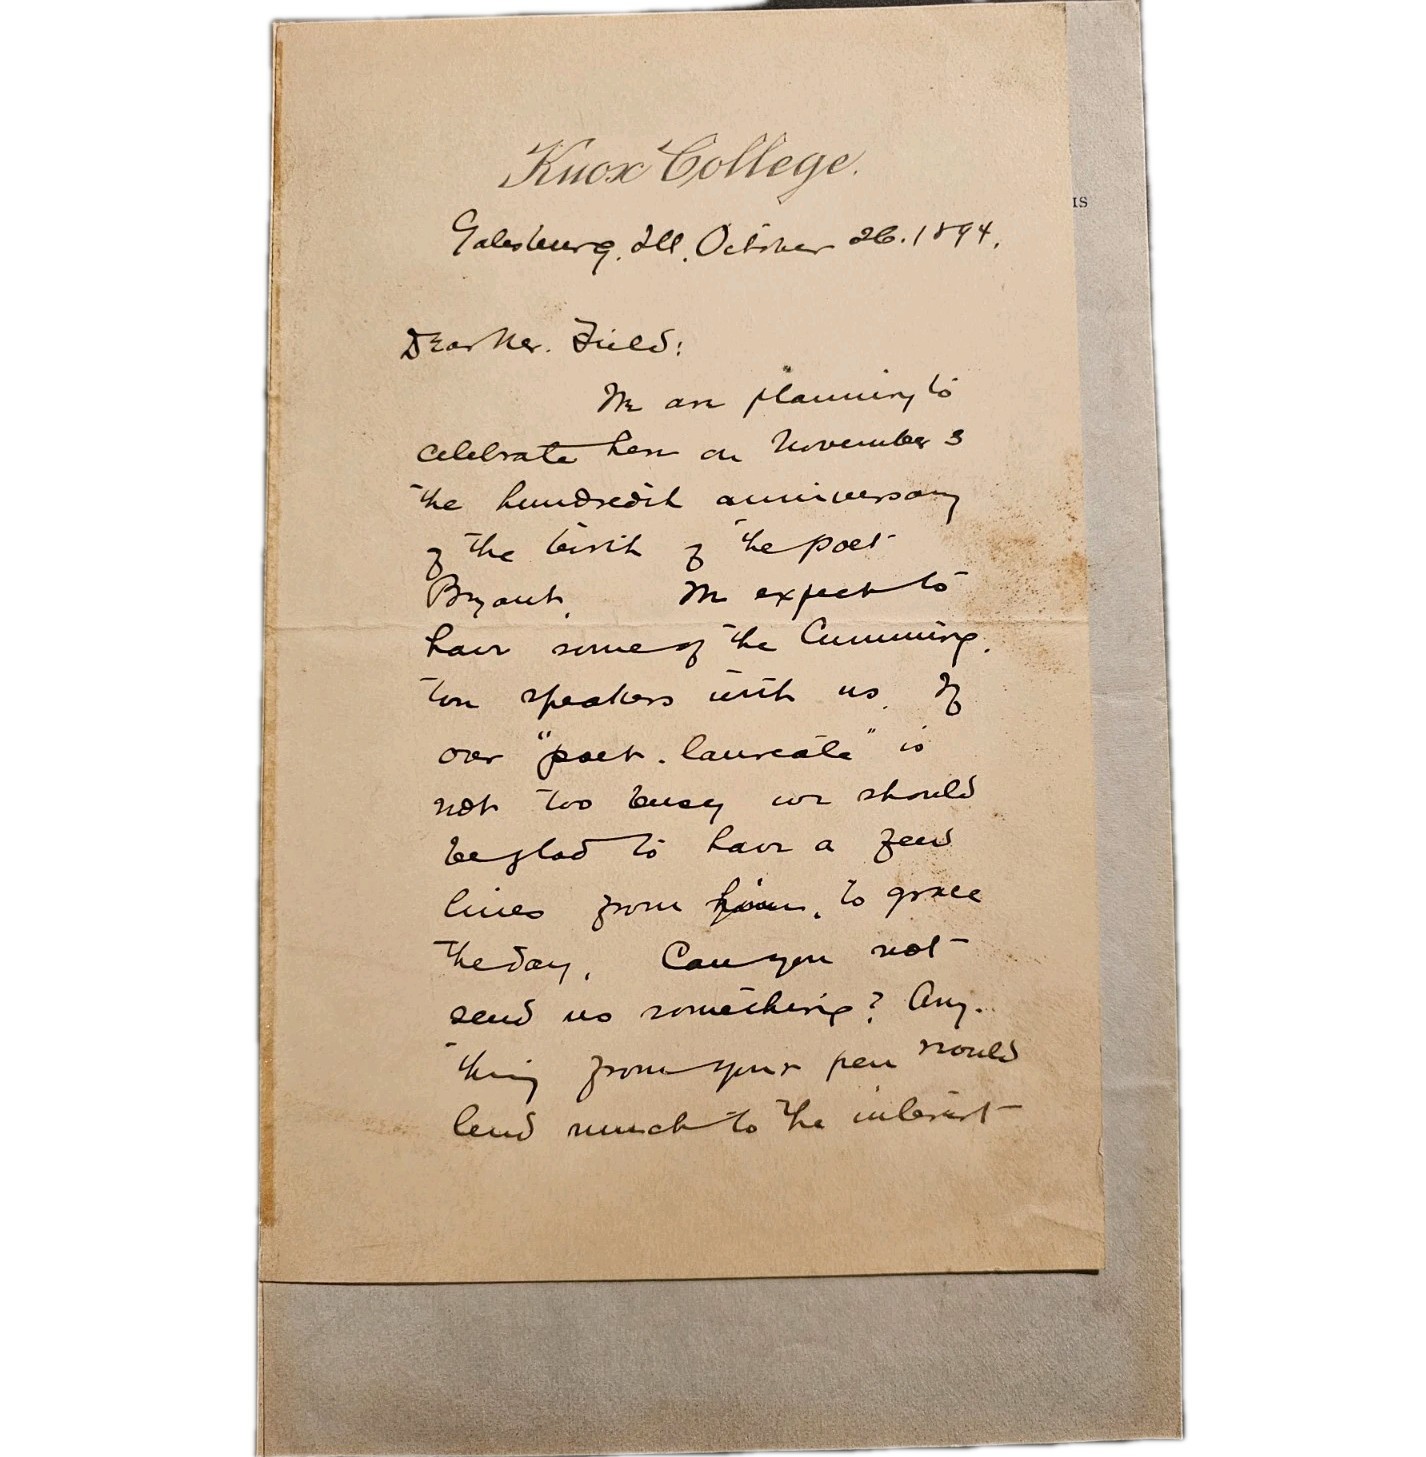 Knox College.
IS
Galesburg, Ill. October 26. 1894.
Dear Mr. Field:
We are planning to
celebrate here on November 3
the hundredth anniversary
of the birth of the poet
Bryant. We expect to
have some of the Cumming-
ton speakers with us. If
our "poet-laureate" is
not too busy we should
be glad to have a few
lines from him, to grace
the day. Can you not
send us something? Any-
thing from your pen would
lend much to the interest